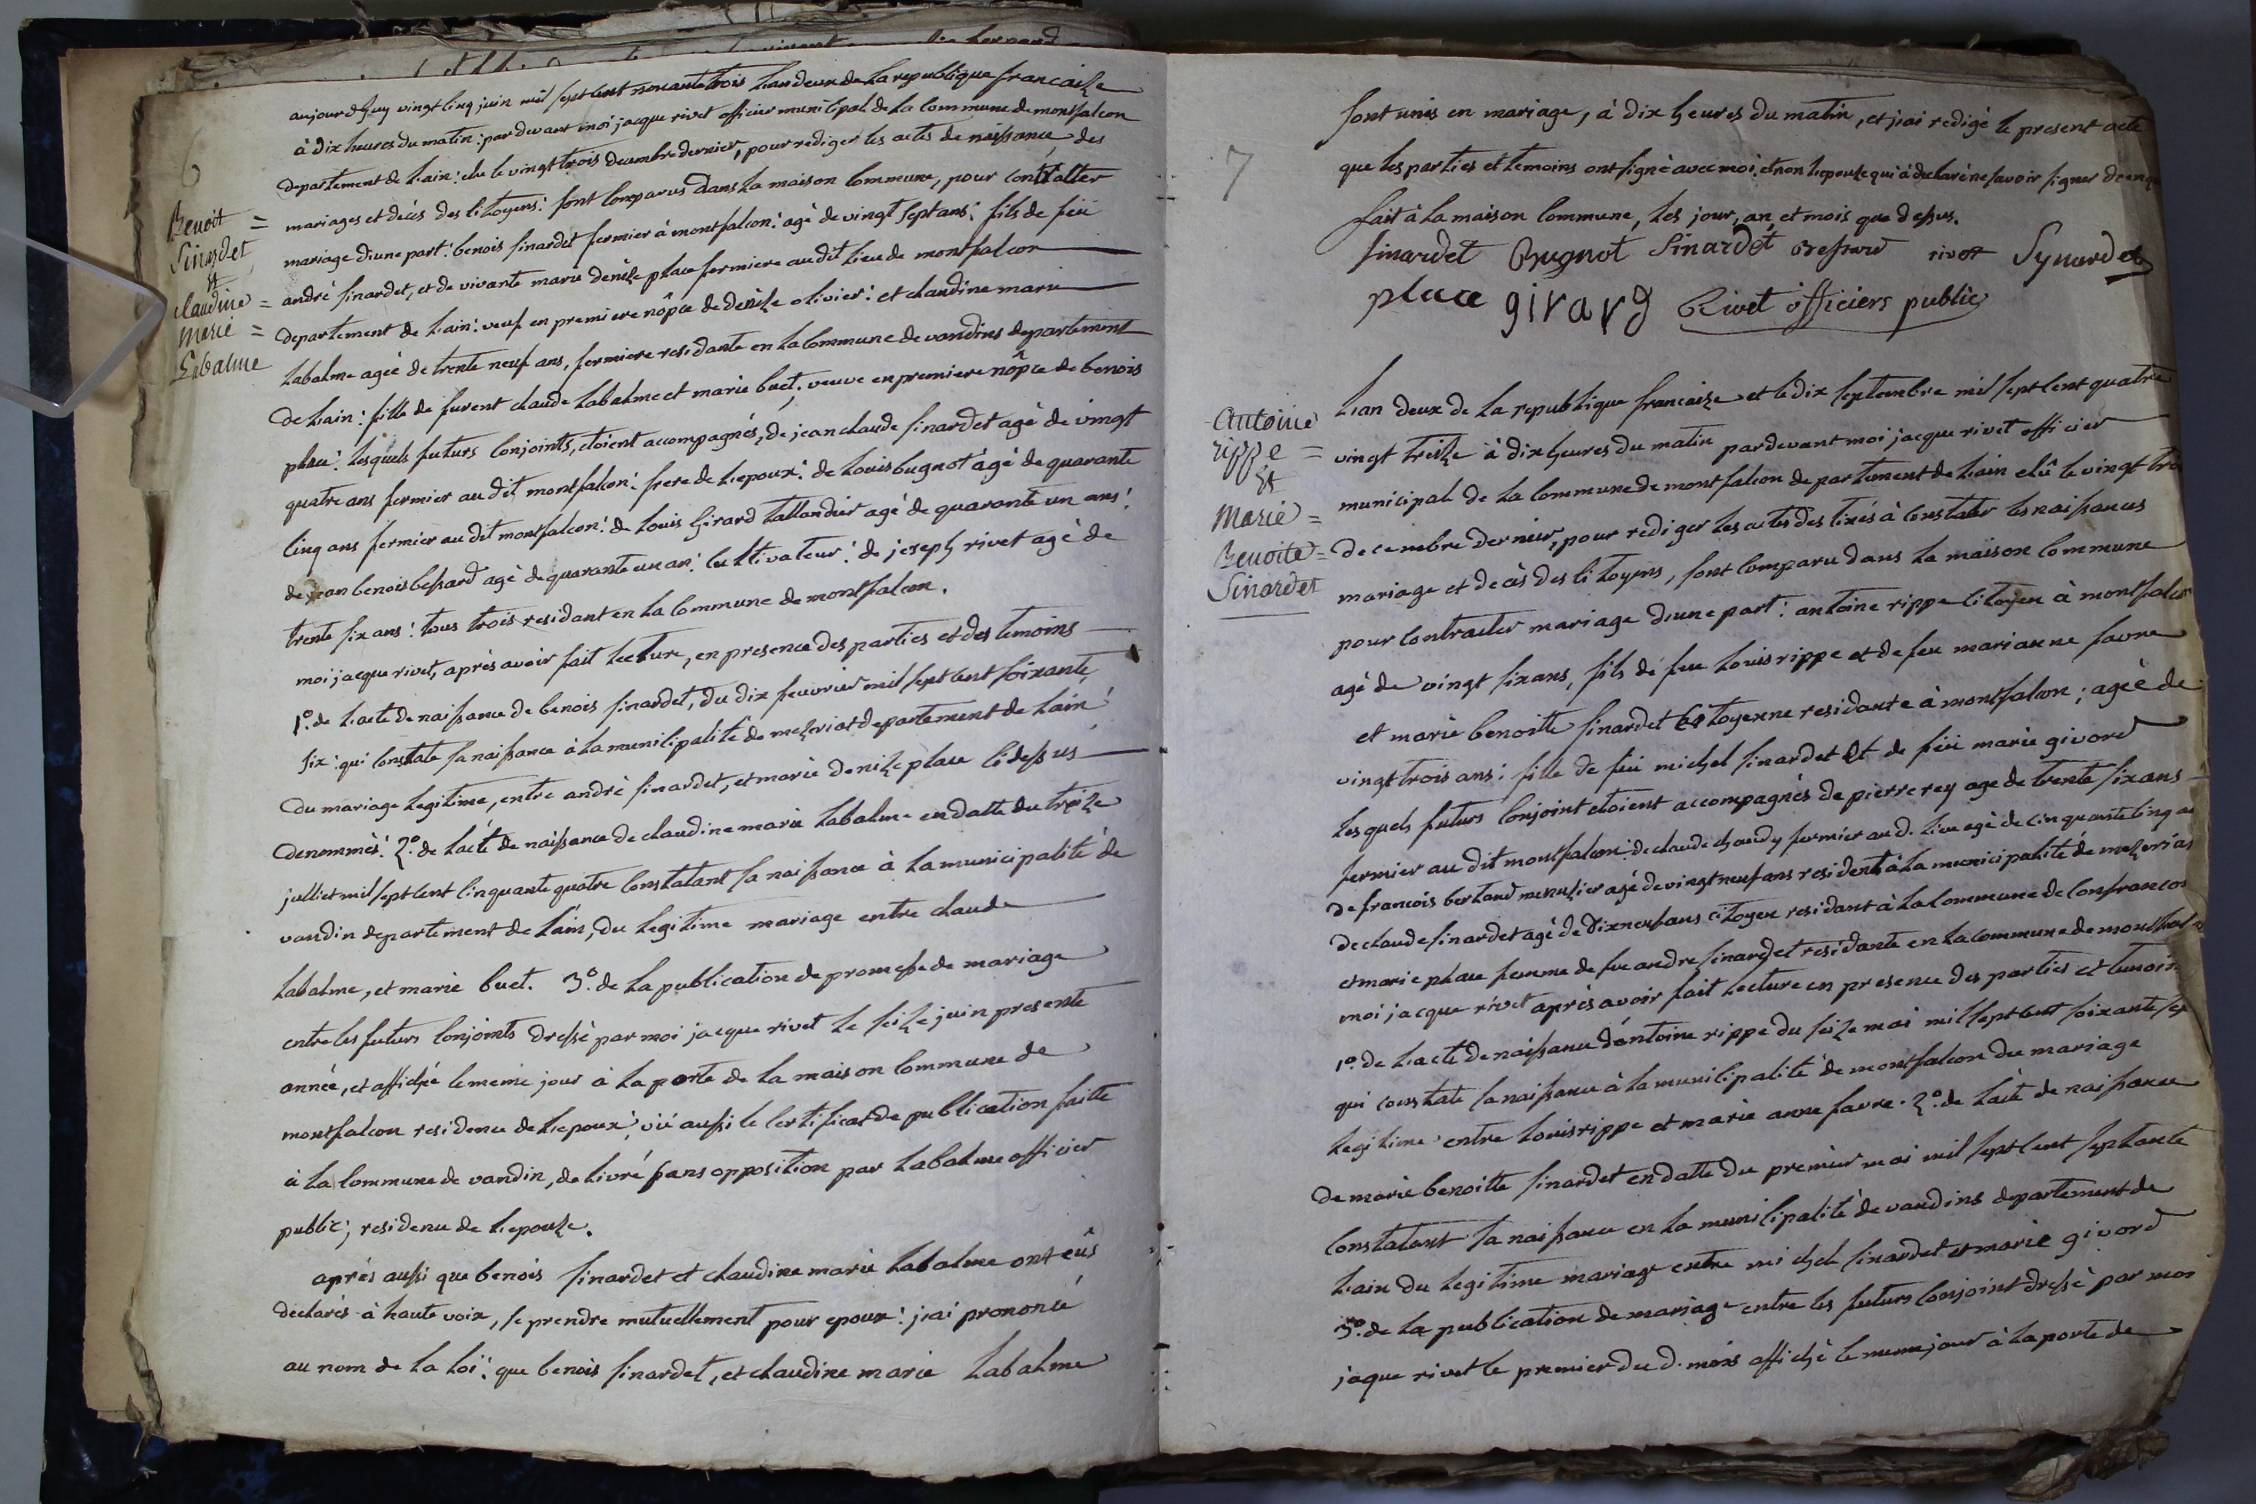 6
Benoit =
Sinardet
et
claudine =
Marie =
Labalme
aujourd'huy vingt cinq juin mil sept cent nonante trois l'an deux de la republique francaize
à dix heures du matin: par devant moi jacque rivet officier municipal de la commune de montfalcon
departement de l'ain: elu le vingt trois decembre dernier, pour rediger les actes de naissance, des
mariages et decés des citoyens: sont comparus dans la maison commune, pour contracter
mariage d'une part: benois sinardet fermier à montfalcon: agé de vingt sept ans: fils de feü
andré sinardet, et de vivante marie denize place fermiere au dit lieu de montfalcon
departement de l'ain: veuf en premiere nôpce de denize olivier: et claudine marie
labalme ageé de trente neuf ans, fermiere residante en la commune de vandins departement
de l'ain: fille de furent claude labalme et marie buet; veuve en premiere nôpce de benois
place: lesquels futurs conjoints, etoient accompagnés, de jean claude sinardet agé de vingt
quatre ans fermier au dit montfalcon: frere de l'epoux: de louis bugnot agé de quarante
cinq ans fermier au dit montfalcon: de louis girard tallandier agé de quarante un ans:
de jean benois bessard agé de quarante un an: cultivateur: de joseph rivet agé de
trente six ans: tous trois residant en la commune de montfalcon.
moi jacque rivet, aprés avoir fait lecture, en presence des parties et des temoins
1º. de l'acte de naissance de benois sinardet, du dix feuvrier mil sept cent soixante
six: qui constate sa naissance à la municipalité de mezeriat departement de l'ain
du mariage legitime, entre andré sinardet, et marie denize place ci dessus
denommés: 2º. de l'acte de naissance de claudine marie labalme en datte du treize
julliet mil sept cent cinquante quatre constatant sa naissance à la municipalité de
vandin departement de l'ain, du legitime mariage entre claude
labalme, et marie buet. 3º. de la publication de promesse de mariage
entre les futurs conjoints dressé par moi jacque rivet le seize juin presente
année, et affiché le meme jour à la porte de la maison commune de
montfalcon residence de l'epoux; vü aussi le certificat de publication faitte
à la commune de vandin, delivré sans opposition par labalme officier
public; residence de l'epouze.
aprés aussi que benois sinardet et claudine marie labalme ont eüs
declarés à haute voix, se prendre mutuellement pour epoux: j'ai prononcé
au nom de la loi: que benois sinardet, et claudine marie labalme
7
sont unis en mariage, à dix heures du matin, et j'ai redigé le present acte
que les parties et temoins ont signé avec moi, et non l'epouze qui à declaré ne savoir signer de
fait à la maison commune, les jour, an, et mois que dessus.
sinardet Bugnot Sinardet Bessard rivet Synardet
place girard Rivet officiers public
Antoine
rippe =
Et
Marie =
Benoite =
Sinardet
L'an deux de la republique francaize et le dix septembre mil sept cent quatre
vingt treize à dix heures du matin pardevant moi jacque rivet officier
municipal de la commune de montfalcon departement de l'ain elû le vingt tro
decembre dernier, pour rediger les actes destinés à constater les naissances
mariage et decés des citoyens, sont comparu dans la maison commune
pour contracter mariage d'une part: antoine rippe citoyen à montfalcon
agé de vingt six ans, fils de feu louis rippe et de feu marianne favre
et marie benoitte sinardet citoyenne residante à montfalcon; ageé de
vingt trois ans: fille de feü michel sinardet et de feü marie givord
lesquels futurs conjoint etoient accompagnés de pierre rey age de trente six ans
fermier au dit montfalcon: de claude chaudy fermier au d. lieu agé de cinquante cinq an
de francois bertaud menusier agé de vingt neuf ans resident à la municipalité de mezerias
de claude sinardet agé de dixneuf ans citoyen residant à la commune de confrancon
et marie place femme de feu andre sinardet residante en la commune de montfalcon
moi jacque rivet aprés avoir fait lecture en presence des parties et temoin
1º. de l'acte de naissance d'antoine rippe du seize mai mil sept cent soixante sep
qui constate sa naissance à la municipalité de montfalcon du mariage
legitime entre louis rippe et marie anne favre. 2º. de l'acte de naissance
de marie benoitte sinardet en datte du premier mai mil sept cent septante
constatant sa naissance en la municipalité de vandins departement de
l'ain du legitime mariage entre michel sinardet et marie givord
3º. de la publication de mariage entre les futurs conjoint dressé par moi
jaque rivet le premier du d. mois affiché le meme jour à la porte de